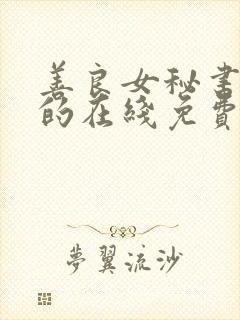 善良女秘书
的在綫免費
夢翼流沙